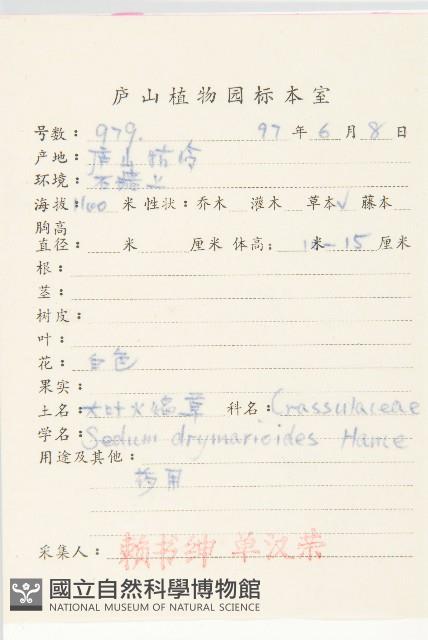 庐山植物园标本室
号数： 979. 97 年 6 月 8 日
产地： 庐山牯岭
环境： 石墙上
海拔： 1100 米 性状：乔木 灌木 草本√ 藤本
胸高
直径： 米 厘米 体高： 米 15 厘米
根：
茎：
树皮：
叶：
花： 白色
果实：
土名：大叶火焰草 科名：Crassulaceae
学名：Sedum drymarioides Hance
用途及其他：
药用
采集人： 赖书绅 单汉荣
國立自然科學博物館
NATIONAL MUSEUM OF NATURAL SCIENCE